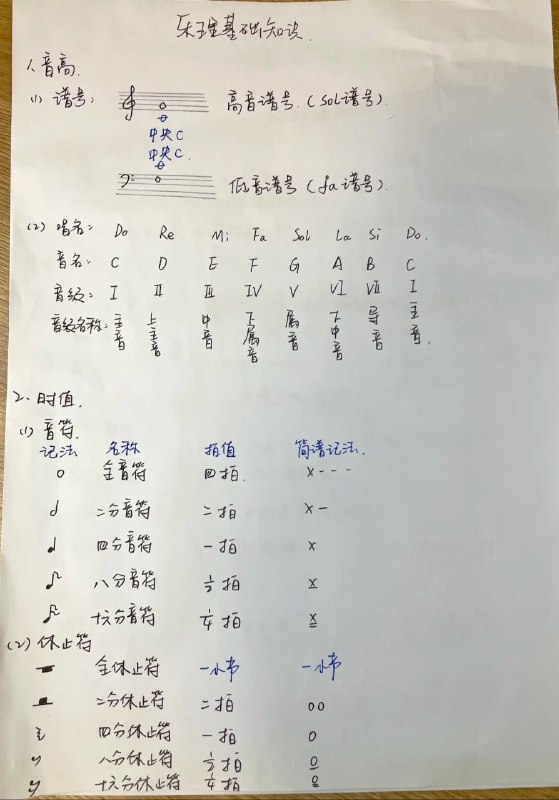 乐理基础知识.
1.音高.
(1) 谱号: 高音谱号.(Sol谱号).
中央C
中央C.
低音谱号(fa谱号).
(2) 唱名: Do Re Mi Fa Sol La Si Do.
音名: C D E F G A B C
音级: I II III IV V VI VII I
音级名称: 主音 上主音 中音 下属音 属音 下中音 导音 主音.
2.时值.
(1) 音符.
记法 名称 拍值 简谱记法.
全音符 四拍. X---
二分音符 二拍 X-
四分音符 一拍 X
八分音符 1/2拍 X
十六分音符 1/4拍 X
(2) 休止符
全休止符 一小节 一小节
二分休止符 二拍 00
四分休止符 一拍 0
八分休止符 1/2拍 0
十六分休止符 1/4拍 0